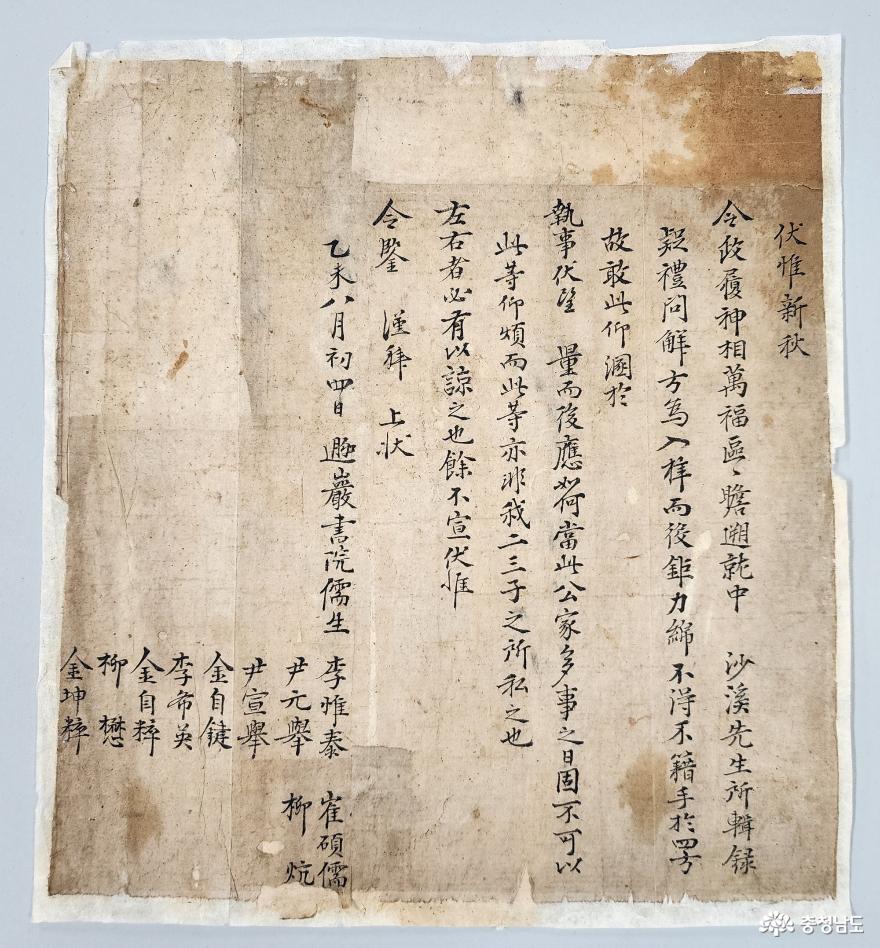 伏惟新秋
令政履神相萬福區〻瞻遡就中 沙溪先生所輯録
疑禮問解方爲入梓而後鉅力綿不得不籍手於四方
故敢此仰溷於
執事伏望 量而後應如何當此公家多事之日固不可以
此等仰煩而此等亦非我二三子之所私之也
左右者必有以諒之也餘不宣伏惟
令鑒 謹拜 上狀
乙未八月初四日 遯巖書院儒生 李惟泰 崔碩儒
尹元擧 柳炕
尹宣擧
金自鍵
李希英
金自粹
柳懋
金坤粹
충청남도